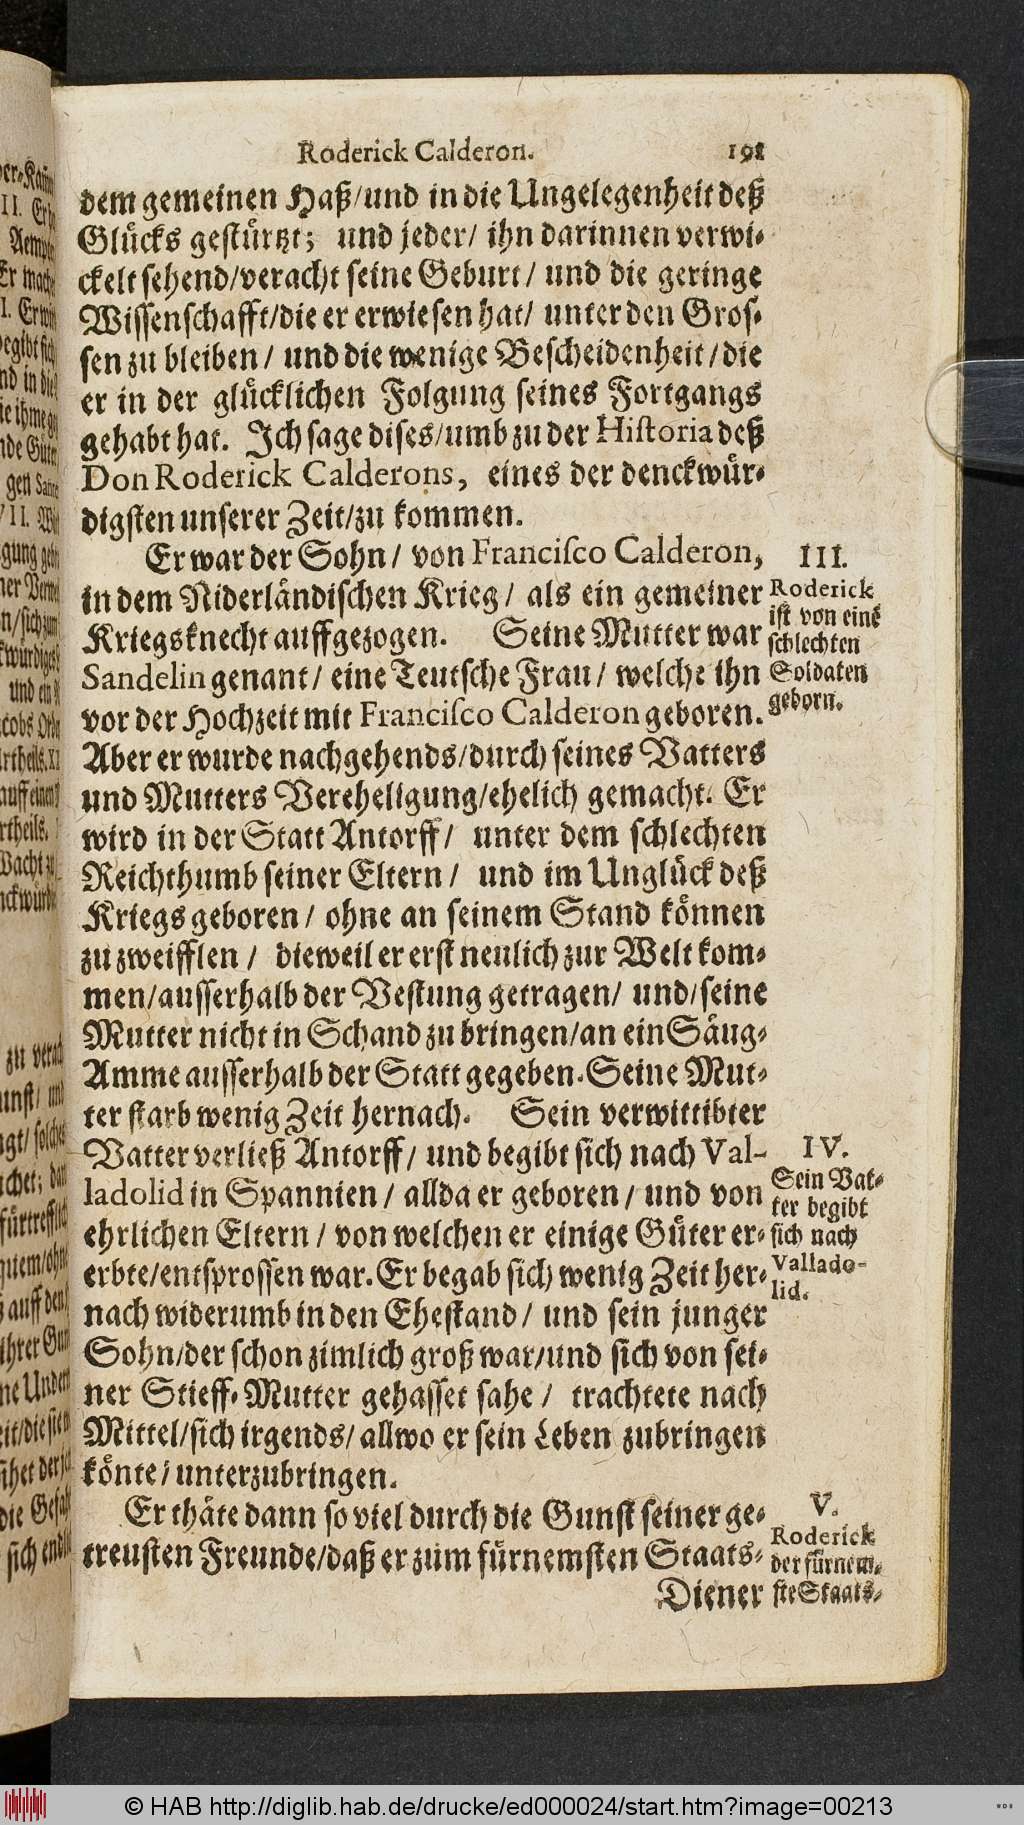 Roderick Calderon. 191
dem gemeinen Haß/und in die Ungelegenheit deß
Glücks gestürtzt; und jeder/ ihn darinnen verwi-
ckelt sehend/veracht seine Geburt/ und die geringe
Wissenschafft/die er erwiesen hat/ unter den Gros-
sen zu bleiben/ und die wenige Bescheidenheit/die
er in der glücklichen Folgung seines Fortgangs
gehabt hat. Ich sage dises/umb zu der Historia deß
Don Roderick Calderons, eines der denckwür-
digsten unserer Zeit/zu kommen.
Er war der Sohn/ von Francisco Calderon,
in dem Niderländischen Krieg/ als ein gemeiner
Kriegsknecht auffgezogen. Seine Mutter war
Sandelin genant/ eine Teutsche Frau/ welche ihn
vor der Hochzeit mit Francisco Calderon geboren.
Aber er wurde nachgehends/durch seines Vatters
und Mutters Vereheligung/ehelich gemacht. Er
wird in der Statt Antorff/ unter dem schlechten
Reichthumb seiner Eltern/ und im Unglück deß
Kriegs geboren/ ohne an seinem Stand können
zu zweifflen/ dieweil er erst neulich zur Welt kom-
men/ausserhalb der Vestung getragen/ und/seine
Mutter nicht in Schand zu bringen/an ein Säug-
Amme ausserhalb der Statt gegeben. Seine Mut-
ter starb wenig Zeit hernach. Sein verwittibter
Vatter verließ Antorff/ und begibt sich nach Val-
ladolid in Spannien/ allda er geboren/ und von
ehrlichen Eltern/ von welchen er einige Güter er-
erbte/entsprossen war. Er begab sich wenig Zeit her-
nach widerumb in den Ehestand/ und sein junger
Sohn/der schon zimlich groß war/und sich von sei-
ner Stieff-Mutter gehasset sahe/ trachtete nach
Mittel/sich irgends/ allwo er sein Leben zubringen
könte/ unterzubringen.
Er thäte dann so viel durch die Gunst seiner ge-
treusten Freunde/daß er zum fürnemsten Staats-
Diener
III.
Roderick
ist von einē
schlechten
Soldaten
geborn.
IV.
Sein Vat-
ter begibt
sich nach
Vallado-
lid.
V.
Roderick
der fürnem-
ste Staats-
© HAB http://diglib.hab.de/drucke/ed000024/start.htm?image=00213